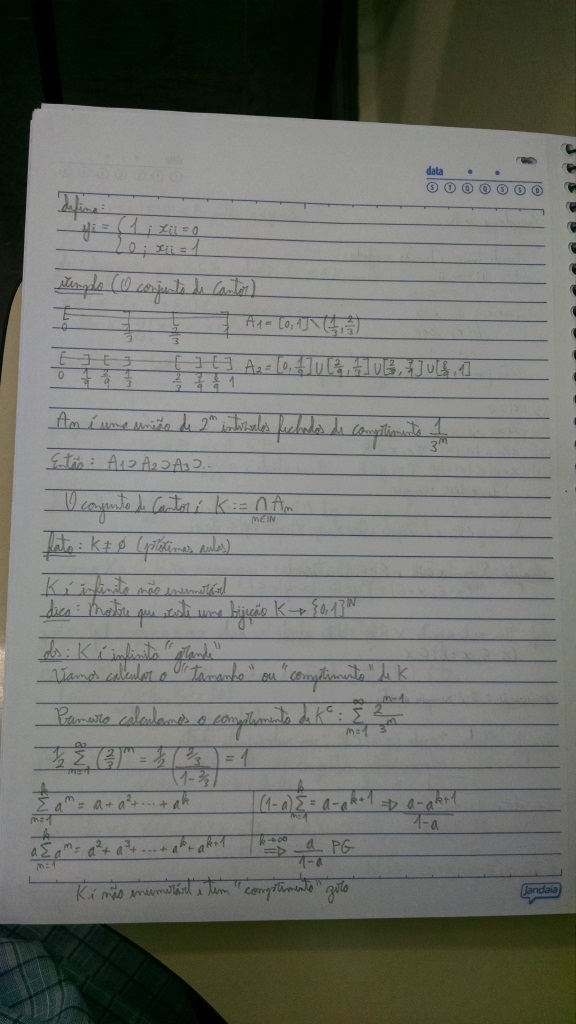 data
S T Q Q S S D
defina:
yi = { 1 ; xii = 0
{ 0 ; xii = 1
exemplo (O conjunto de Cantor)
[ ] [ ] A1 = [0,1] \ (1/3, 2/3)
0 1/3 2/3 1
[ ] [ ] [ ] [ ] A2 = [0, 1/9] ∪ [2/9, 1/3] ∪ [2/3, 7/9] ∪ [8/9, 1]
0 1/9 2/9 1/3 2/3 7/9 8/9 1
An é uma união de 2^n intervalos fechados de comprimento 1/3^n
Então: A1 ⊃ A2 ⊃ A3 ⊃ ...
O conjunto de Cantor é K := ∩ An
n∈IN
fato: K ≠ ∅ (próximas aulas)
K é infinito não enumerável
dica: mostre que existe uma bijeção K → {0,1}^IN
obs: K é infinito "grande"
Vamos calcular o "tamanho" ou "comprimento" de K
Primeiro calculamos o comprimento de K^c: ∑_{n=1}^∞ 2^{n-1}/3^n
1/2 ∑_{n=1}^∞ (2/3)^n = 1/2 ((2/3)/(1-2/3)) = 1
∑_{n=1}^k a^n = a + a² + ... + a^k | (1-a) ∑_{n=1}^k = a - a^{k+1} ⇒ (a - a^{k+1})/(1-a)
a ∑_{n=1}^k a^n = a² + a³ + ... + a^k + a^{k+1} | k→∞ ⇒ a/(1-a) PG
K é não enumerável e tem "comprimento" zero
Jandaia